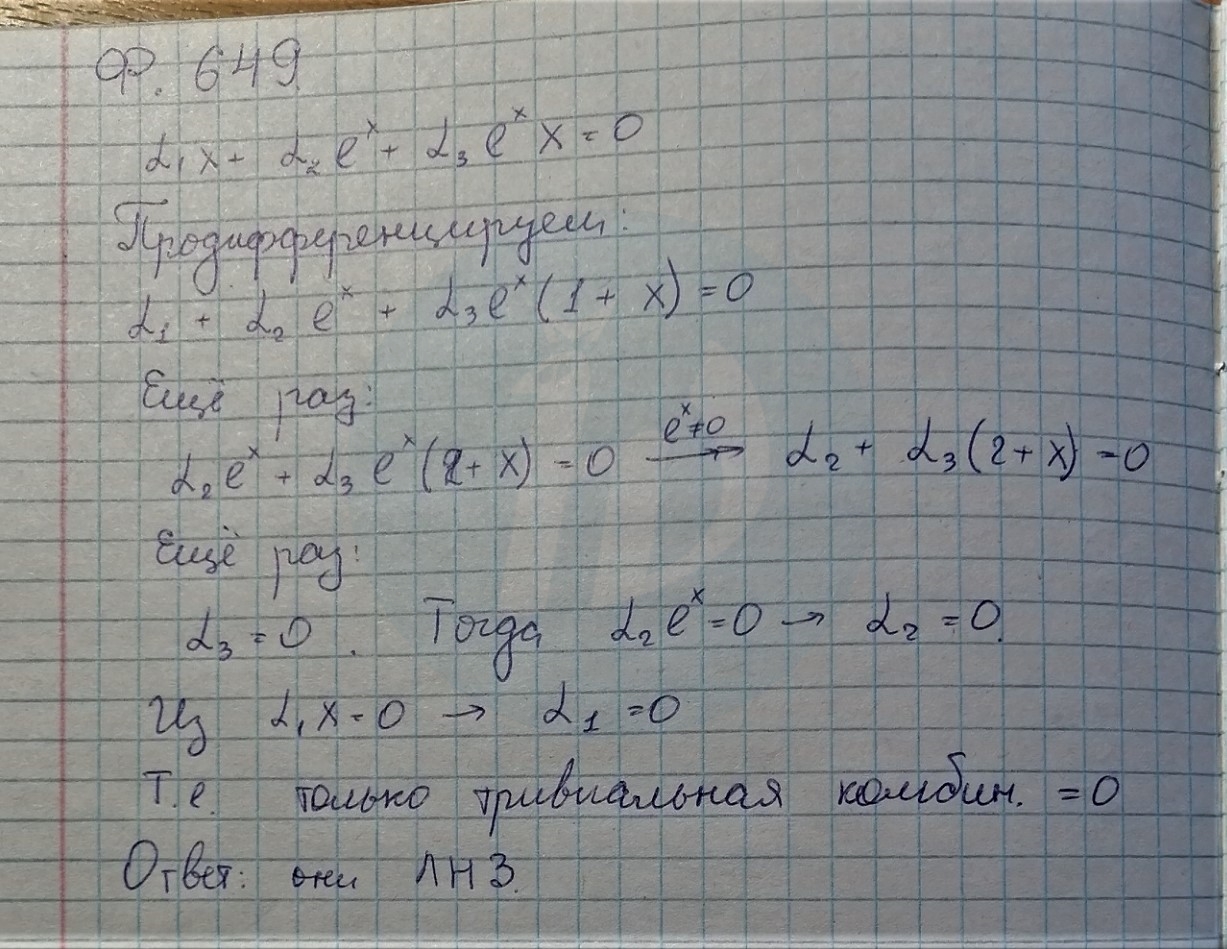 Ф. 649
α₁x + α₂eˣ + α₃eˣx = 0
Продифференцируем:
α₁ + α₂eˣ + α₃eˣ(1 + x) = 0
Ещё раз:
α₂eˣ + α₃eˣ(2 + x) = 0 →(eˣ≠0) α₂ + α₃(2 + x) = 0
Ещё раз:
α₃ = 0. Тогда α₂eˣ = 0 → α₂ = 0.
Из α₁x = 0 → α₁ = 0
Т.е. только тривиальная комбин. = 0
Ответ: они ЛНЗ.